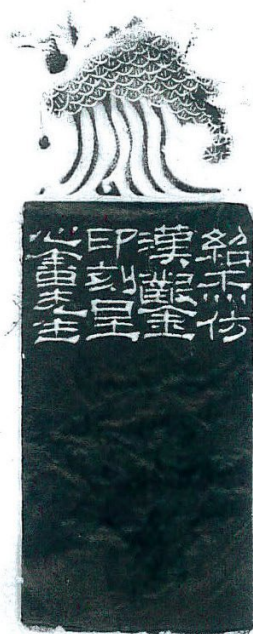 紹杰仿
漢鑿金
印刻呈
心畬先生